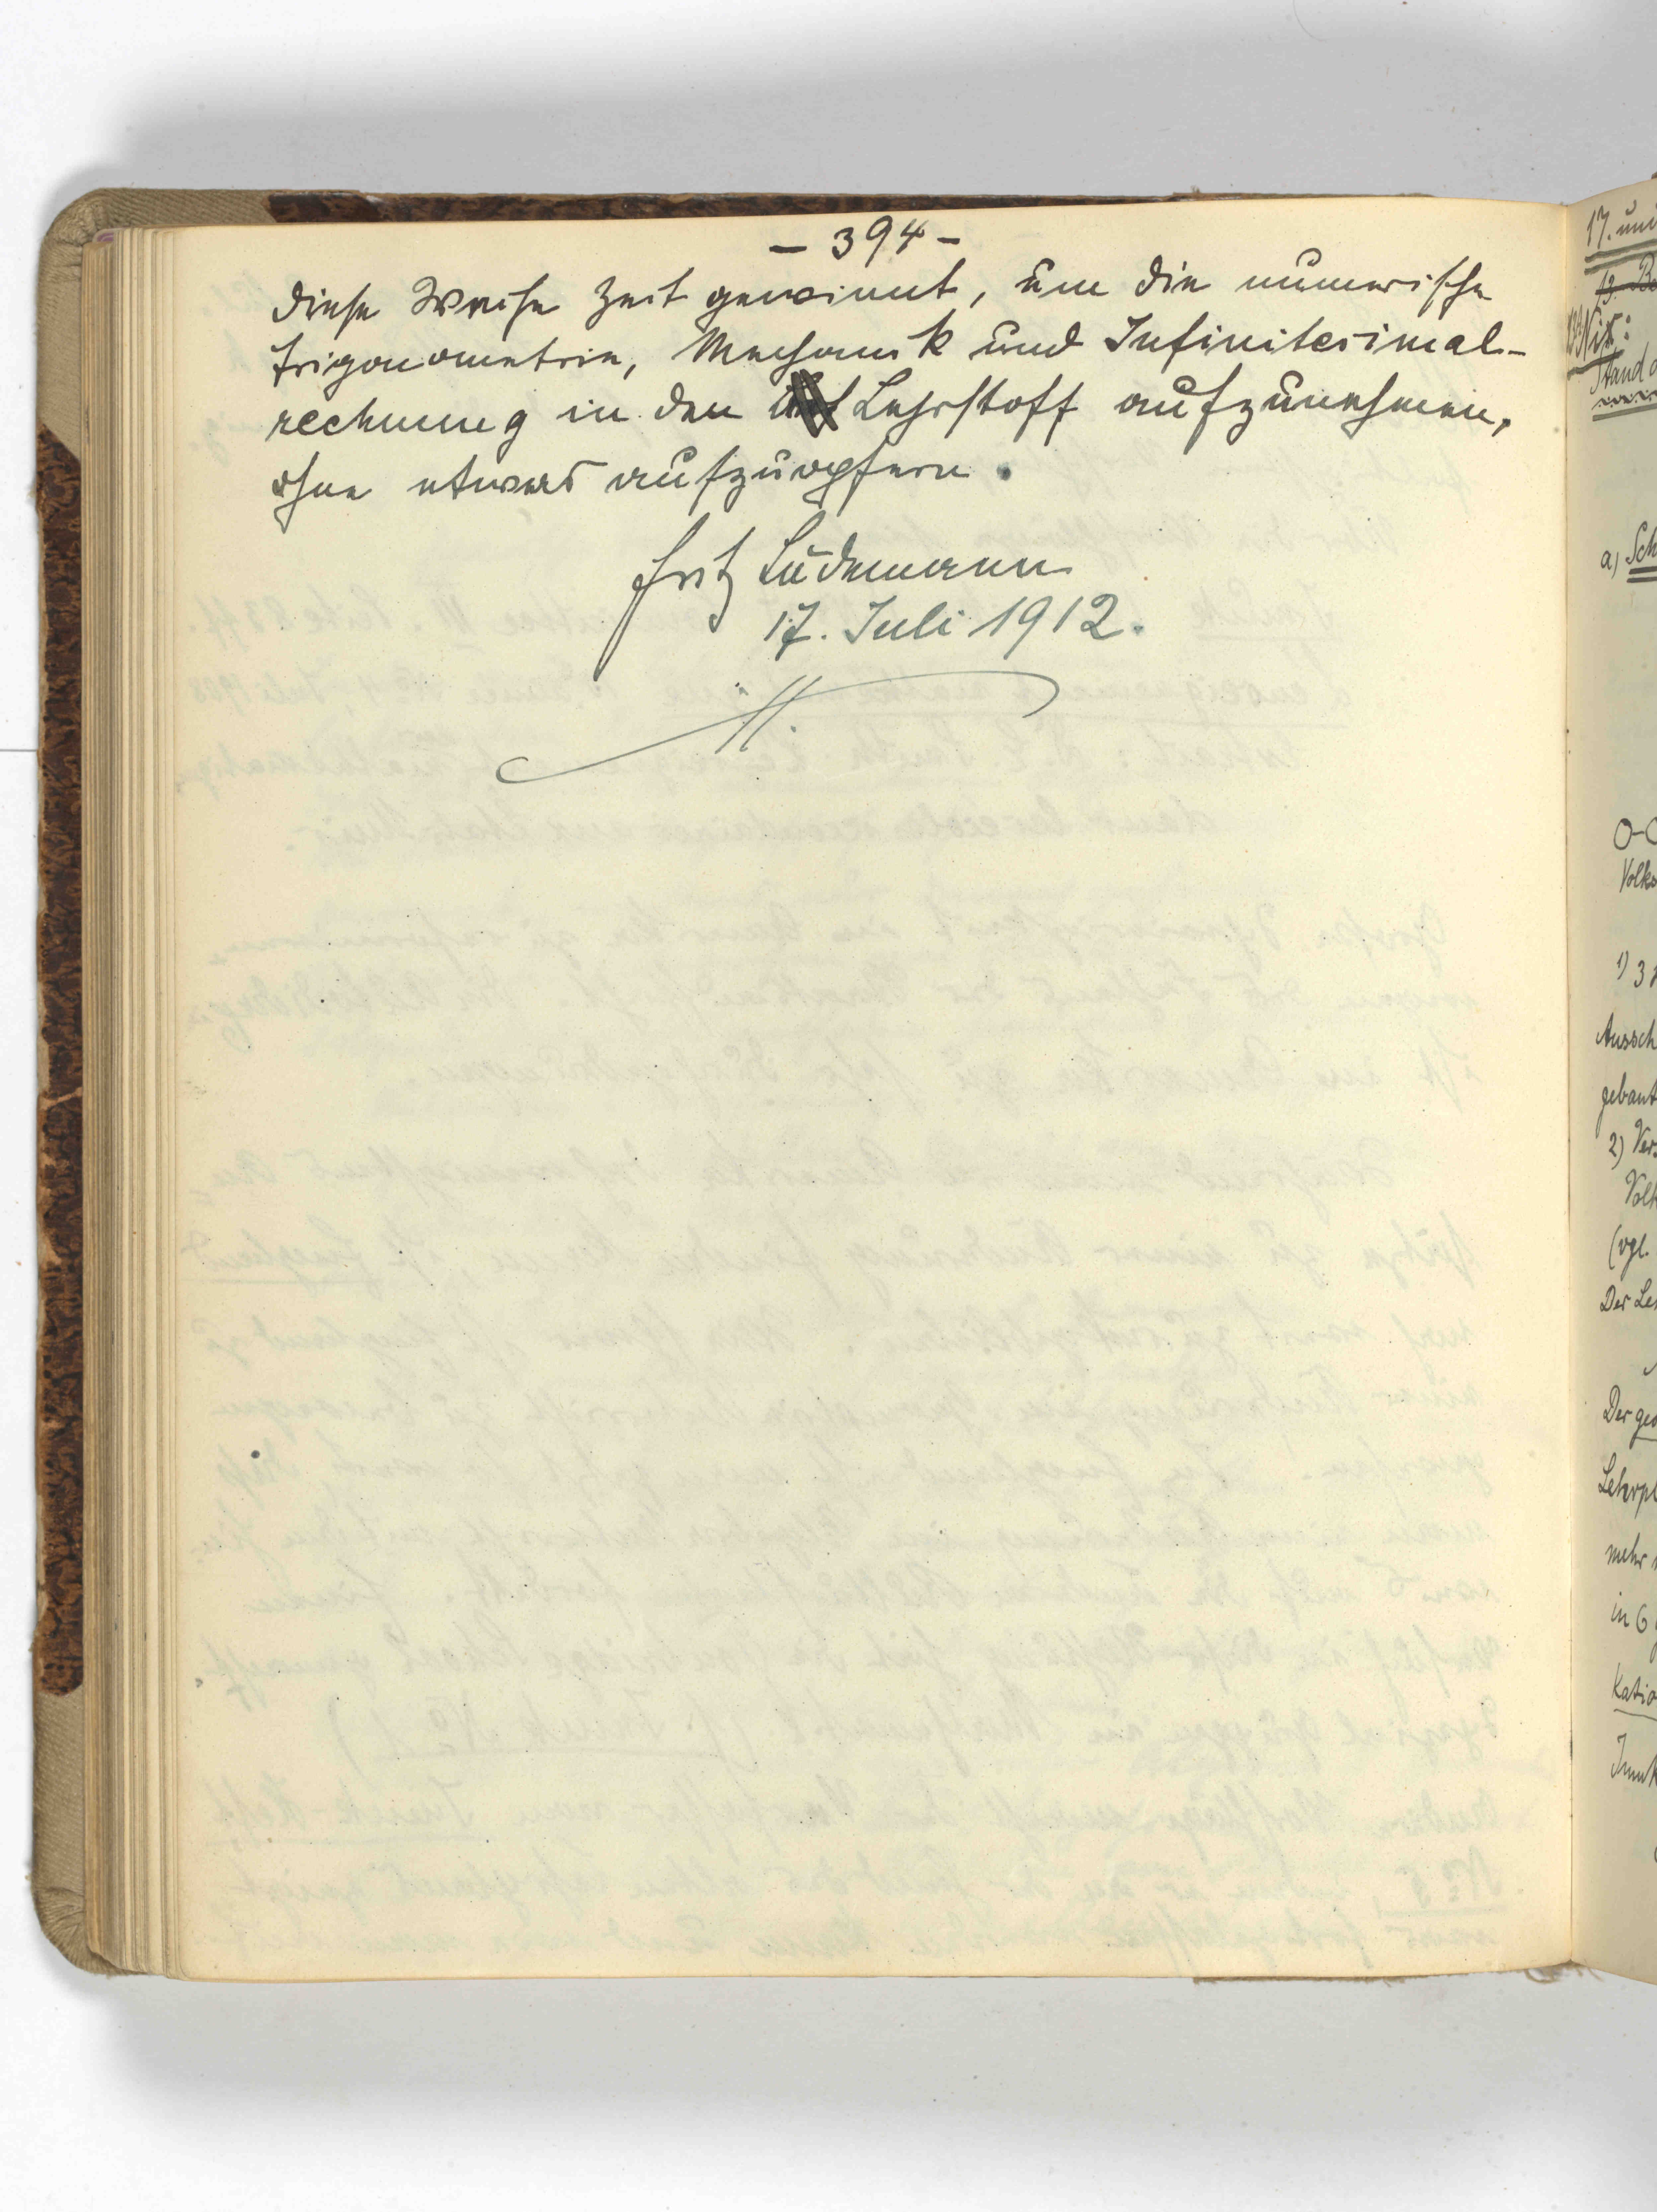 – 394 –
diese Weise Zeit gewinnt, um die numerische
Trigonometrie, Mechanik und Infinitesimal-
rechnung in den Lehrstoff aufzunehmen,
ohne etwas aufzuopfern.
Fritz Lüdemann
17. Juli 1912.
H.
17. und
Nix:
Stand d
a) Sch
Volks
1) 3
Aussch
gebaut
2) Ver
Volk
(vgl.
Der Le
Der geo
Lehrpl
mehr
in 6
katio